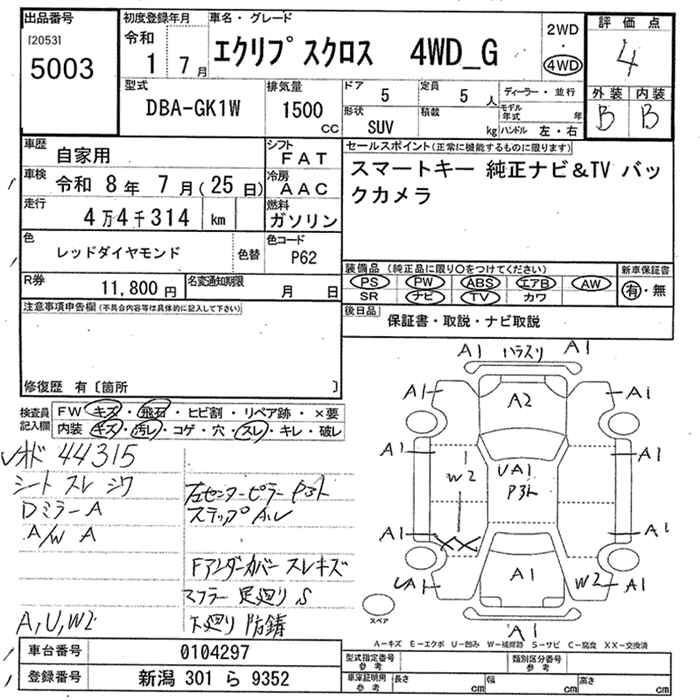 出品番号
[2053]
5003
初度登録年月
令和
1 7月
車名・グレード
エクリプスクロス 4WD_G
2WD
・
4WD
評価点
4
外装 内装
B B
型式
DBA-GK1W
排気量
1500
cc
ドア 5
定員 5 人
形状 SUV
積載 kg
ディーラー・並行
モデル年式 年
ハンドル 左・右
車歴
自家用
シフト
FAT
車検
令和 8年 7月(25日)
冷房
AAC
走行
4万4千314 km
燃料
ガソリン
色
レッドダイヤモンド
色替
色コード
P62
R券
11,800円
名変通知期限
月 日
セールスポイント(正常に機能するものに限ります)
スマートキー 純正ナビ&TV バッ
クカメラ
装備品 (純正品に限り○をつけてください)
PS PW ABS エアB AW
SR ナビ TV カワ
新車保証書
有・無
後日品
保証書・取説・ナビ取説
注意事項申告欄(不具合内容等は具体的に記入して下さい)
修復歴 有〔箇所 〕
検査員
記入欄
FW キズ・飛石・ヒビ割・リペア跡・×要
内装 キズ・汚レ・コゲ・穴・スレ・キレ・破レ
44315
シート スレ シワ
Dミラー A
A/W A
A,U,W2
右センターピラー P3ト
ステップ
Fアンダーカバー スレキズ
マフラー 足廻り S
下廻り 防錆
A1 ハラスリ A1
A1 A2 A1
A1 W2 UA1 A1
P3ト
A1 XX A1
UA1 A1 W2 A1
A1
スペア
A-キズ E-エクボ U-凹み W-補修跡 S-サビ C-腐食 XX-交換済
車台番号
0104297
登録番号
新潟 301 ら 9352
型式指定番号
参考
類別区分番号
参考
車庫証明用
参考
長さ cm
幅 cm
高さ cm